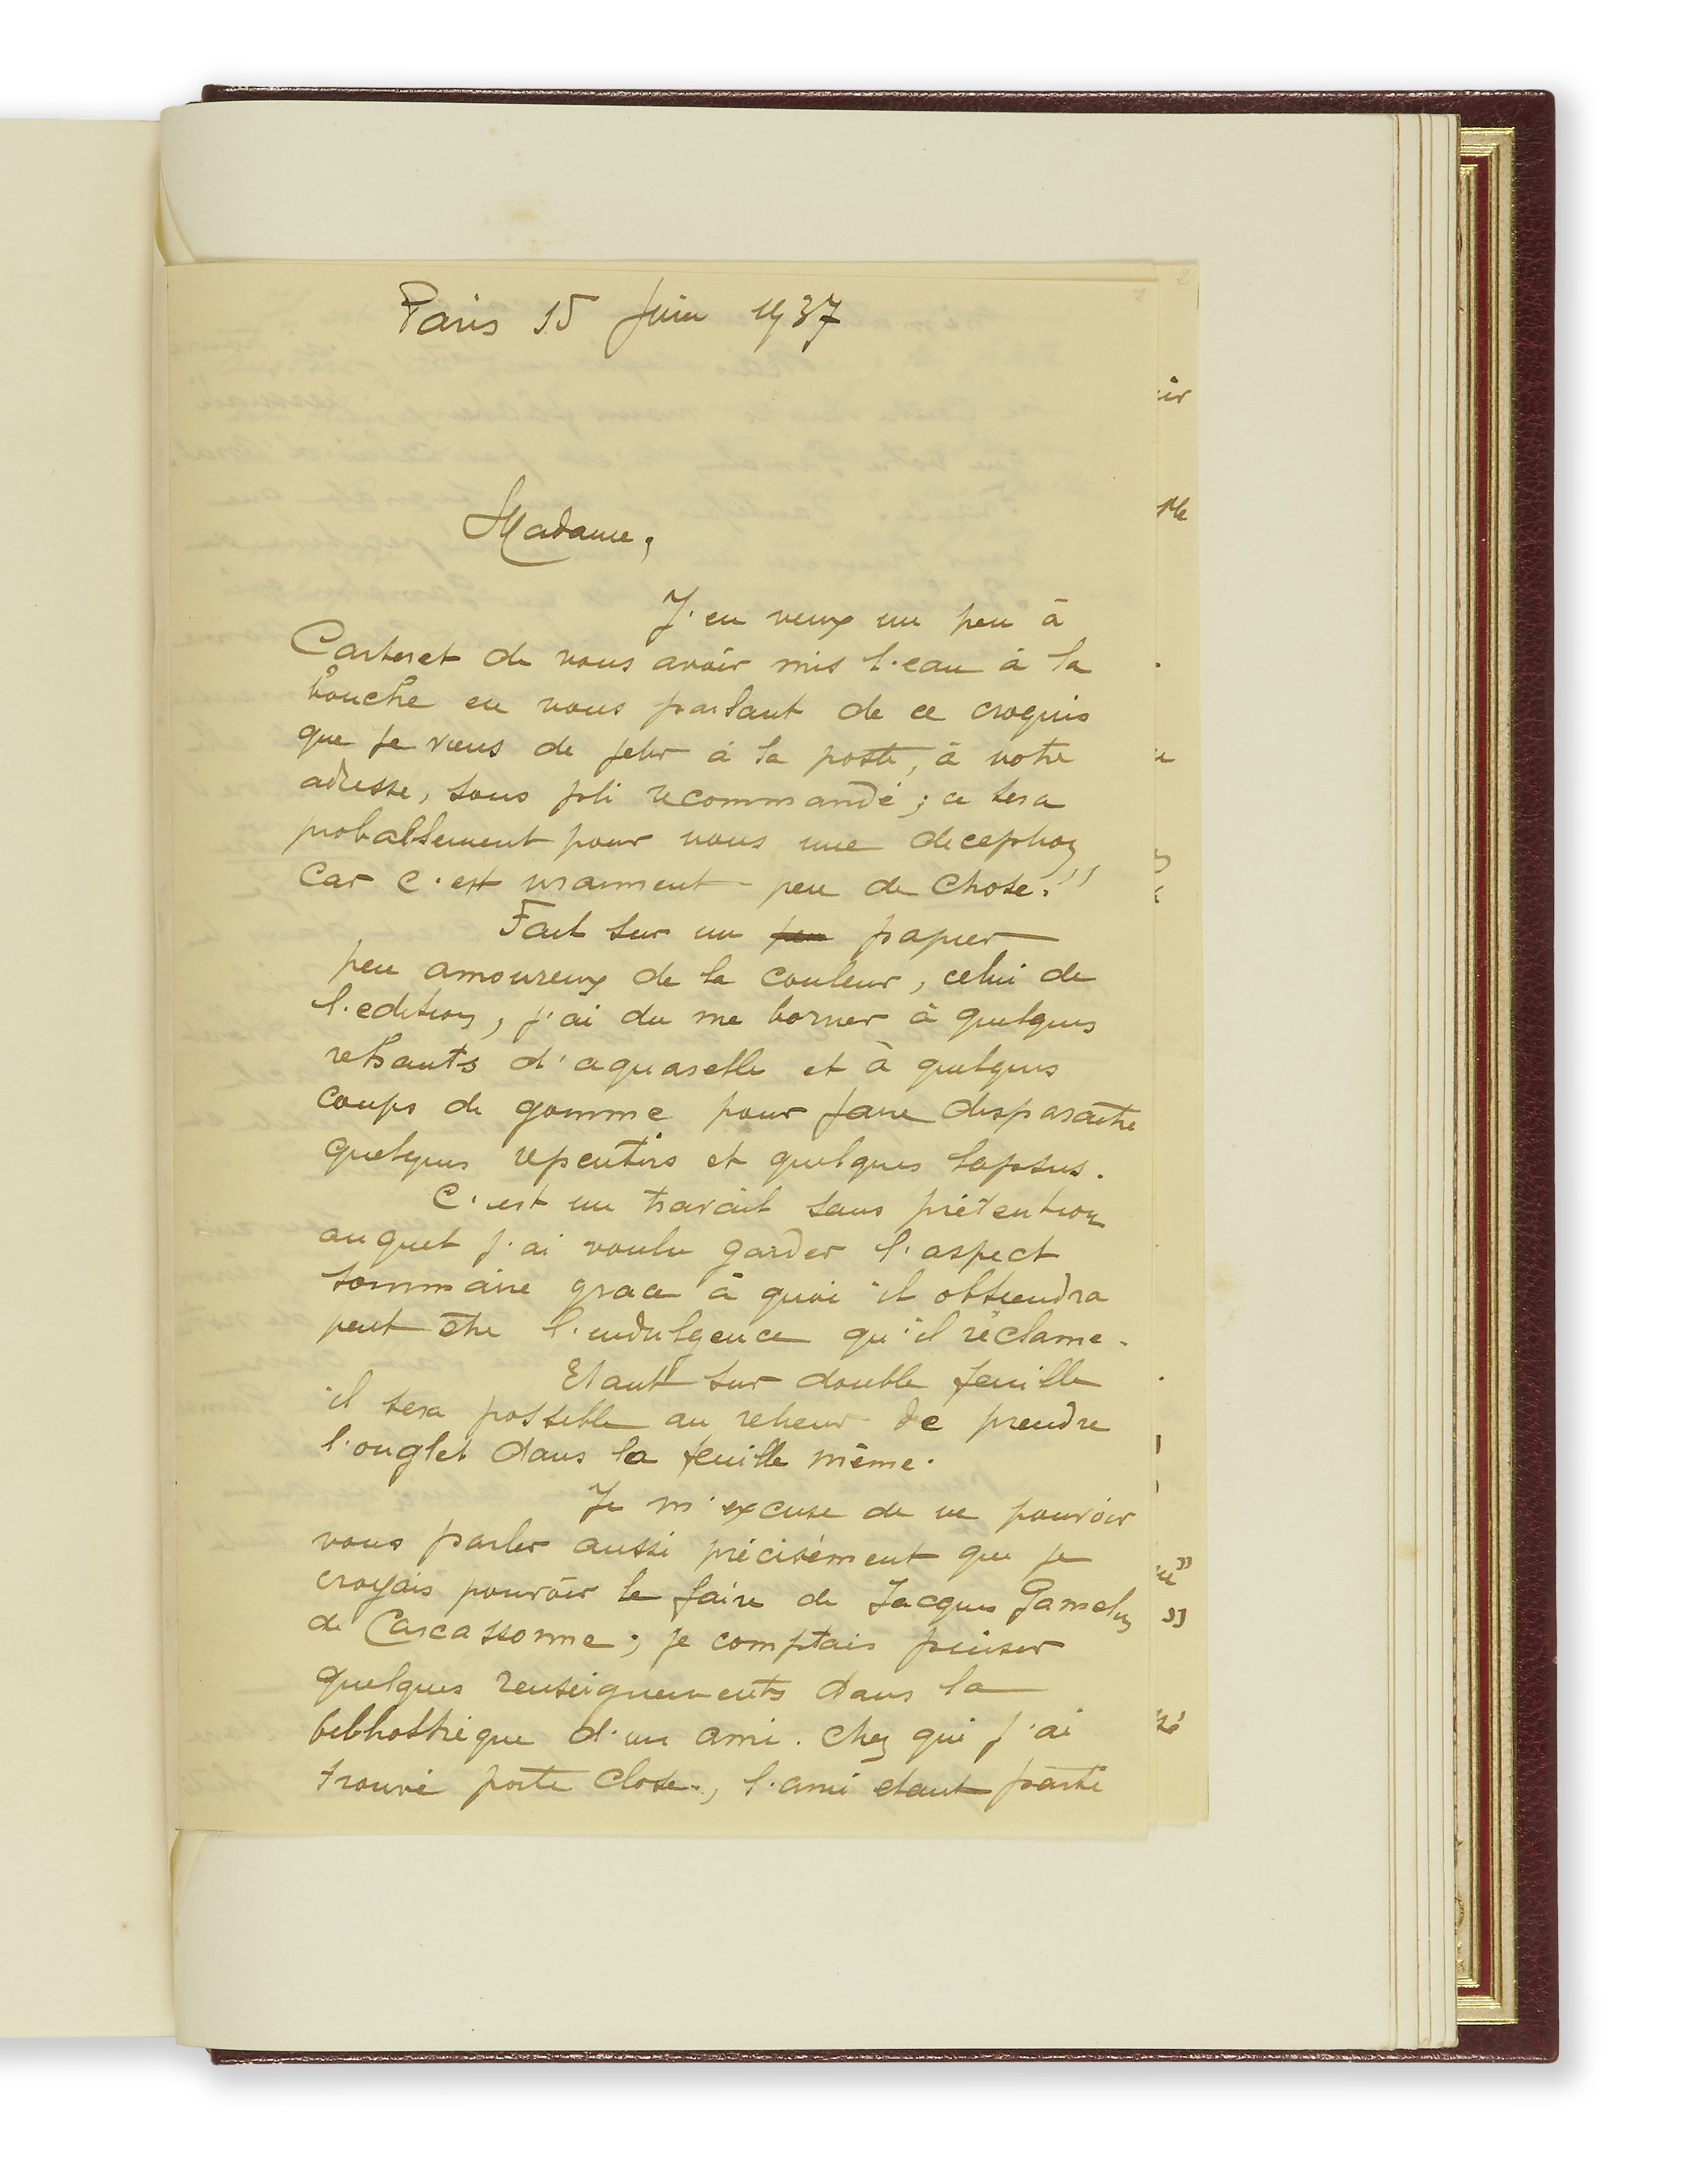 Paris 15 Juin 1937
Madame,
J'en veux un peu à
Carteret de vous avoir mis l'eau à la
bouche en vous parlant de ce croquis
que je viens de jeter à la poste, à votre
adresse, sous pli recommandé ; ce sera
probablement pour vous une deception
car c'est vraiment peu de chose.
Fait sur un peu papier
peu amoureux de la couleur, celui de
l'edition, j'ai du me borner à quelques
rehauts d'aquarelle et à quelques
coups de gomme pour faire disparaitre
quelques repentirs et quelques lapsus.
C'est un travail sans prétention
auquel j'ai voulu garder l'aspect
sommaire grace à quoi il obtiendra
peut être l'indulgence qu'il réclame.
Etant sur double feuille
il sera possible au relieur de prendre
l'onglet dans la feuille même.
Je m'excuse de ne pouvoir
vous parler aussi précisément que je
croyais pouvoir le faire de Jacques Gamelin
de Carcassonne ; je comptais puiser
quelques renseignements dans la
bibliothèque d'un ami. chez qui j'ai
trouvé porte close., l'ami etant parti